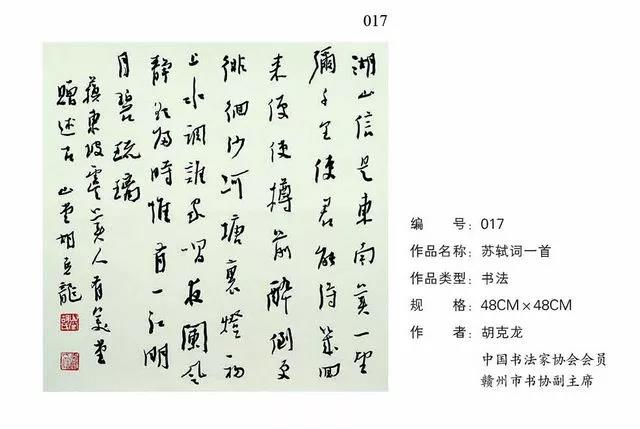 017
湖山信是東南美一望
彌千里使君能得幾回
来便使樽前醉倒更
徘徊沙河塘裏燈初
上水調誰家唱夜闌風
靜欲歸時惟有一江明
月碧琉璃
蘇東坡虞美人有美堂
贈述古 山堂胡克龍
编 号：017
作品名称：苏轼词一首
作品类型：书法
规 格：48CM×48CM
作 者：胡克龙
中国书法家协会会员
赣州市书协副主席